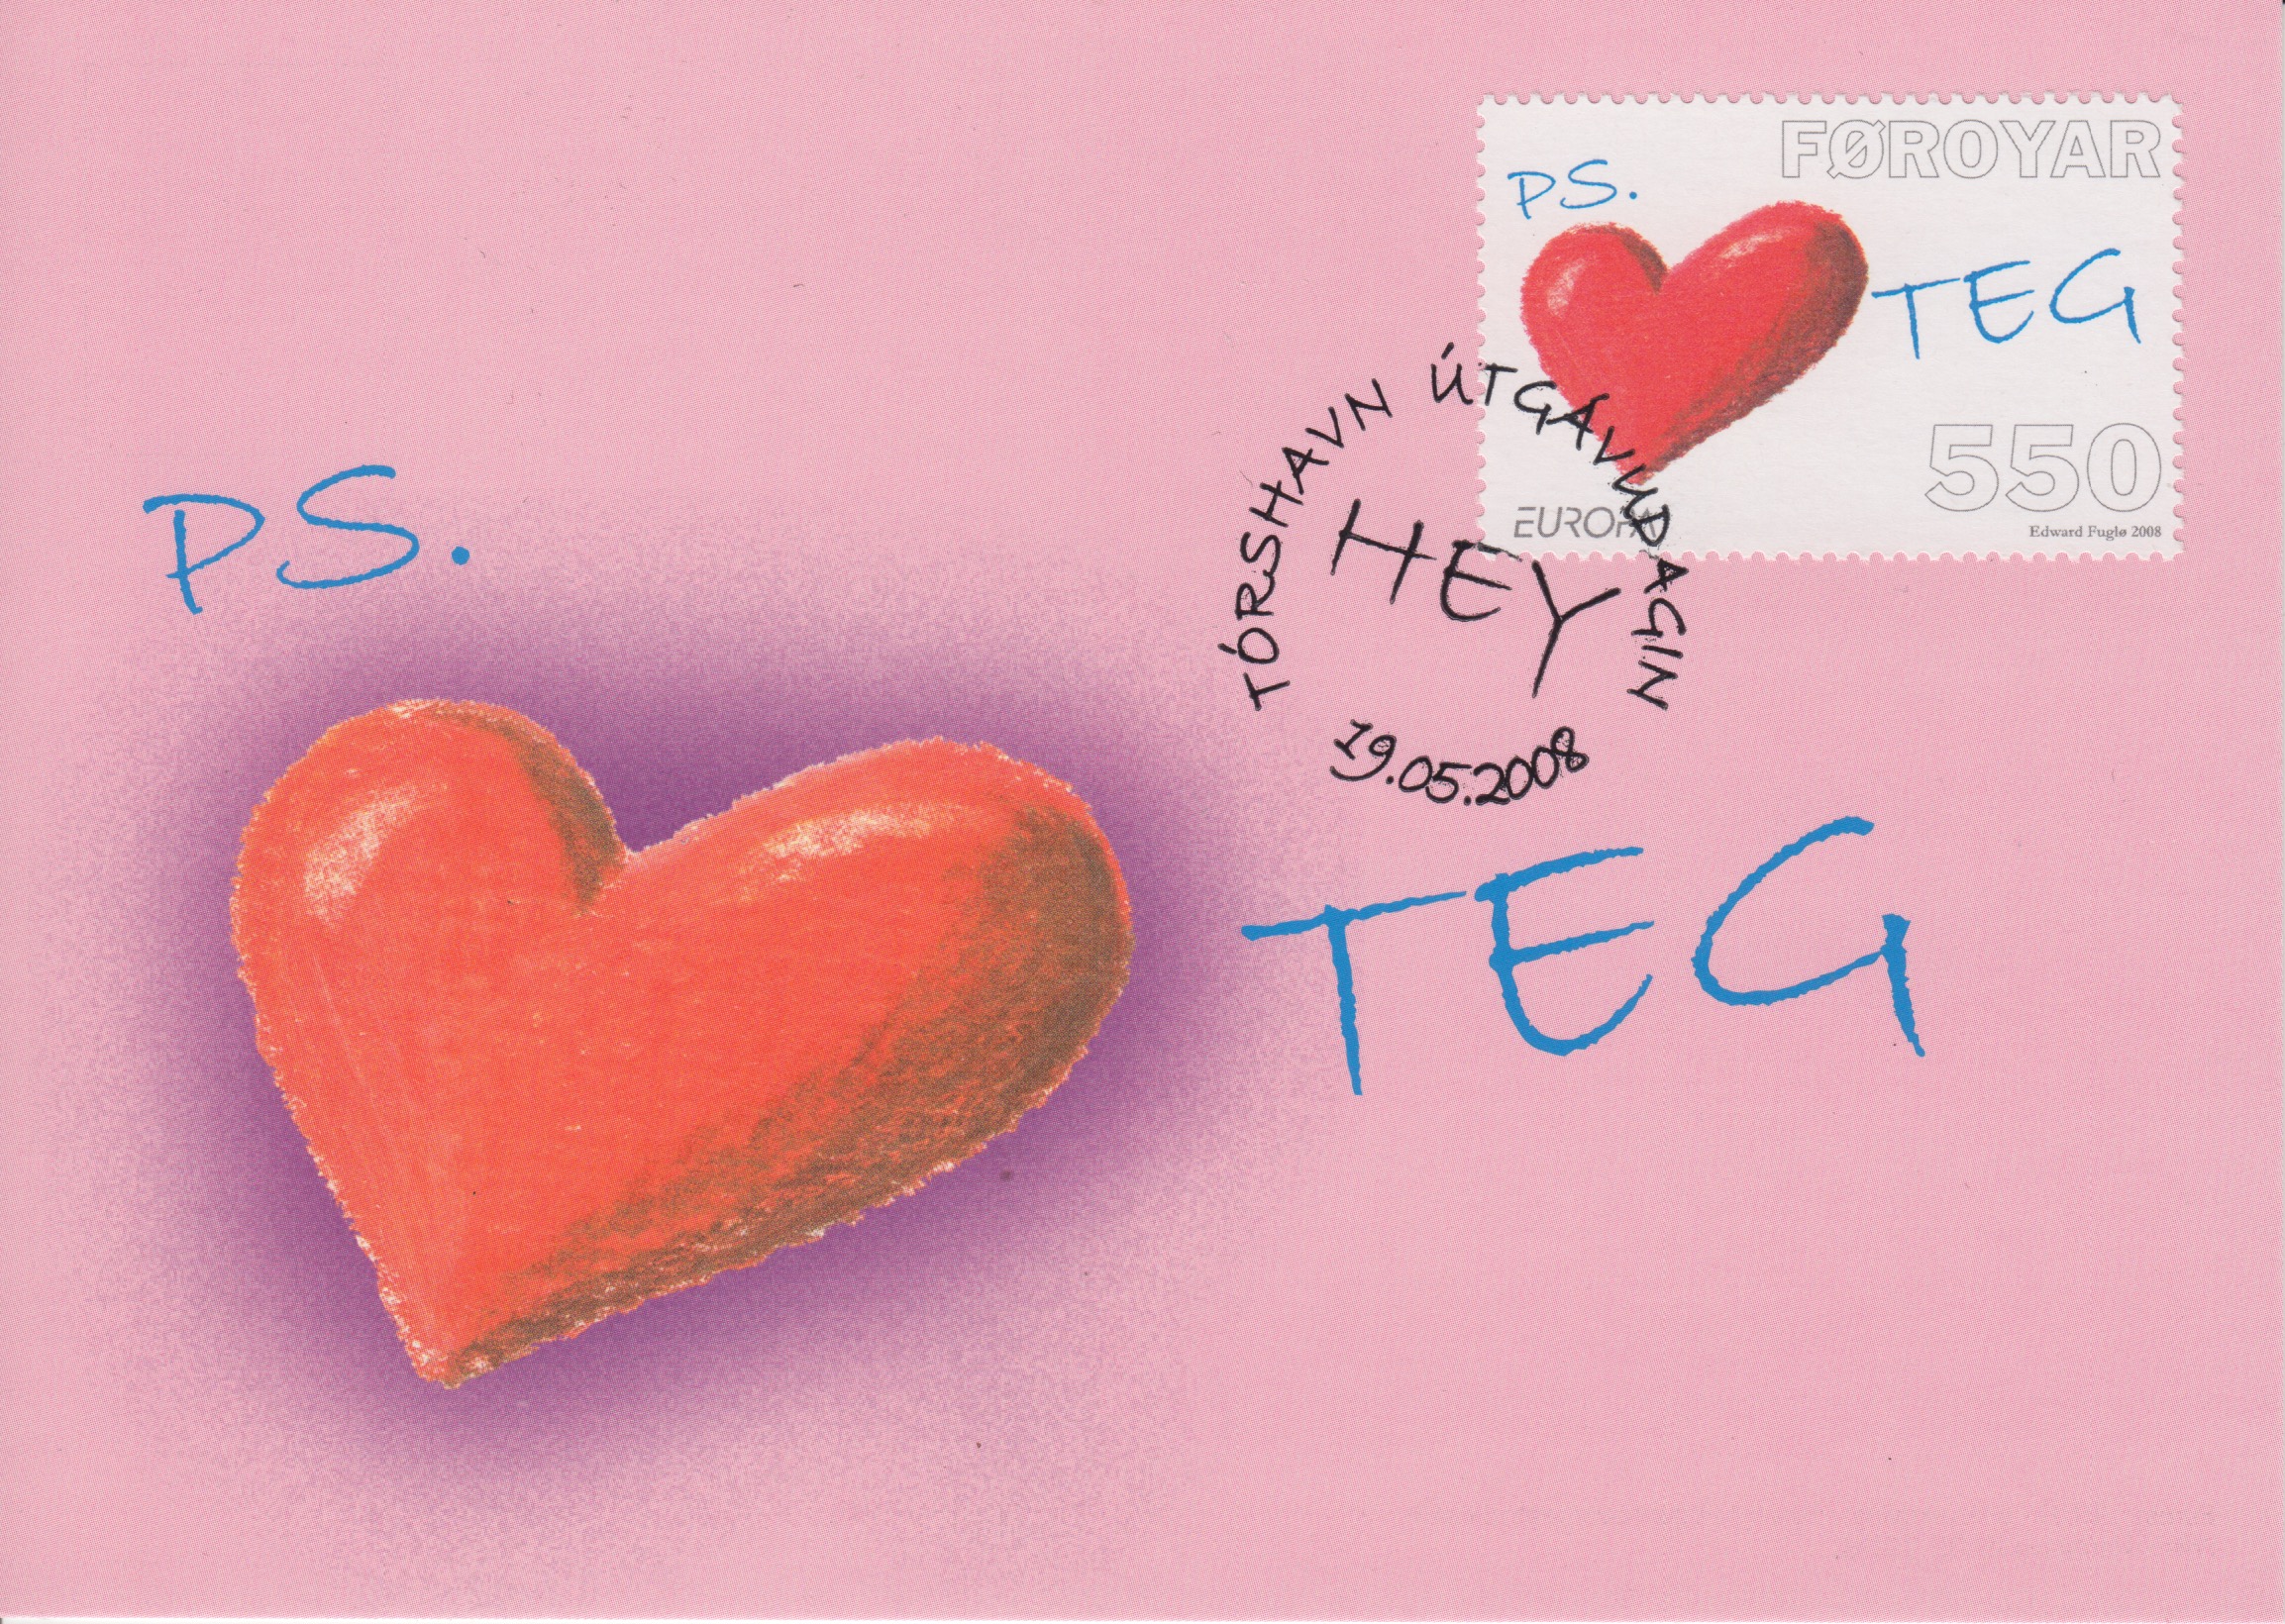 FØROYAR
PS.
TEG
550
EUROPA
Edward Fuglø 2008
TÓRSHAVN ÚTGÁVUDAGIN
HEY
19.05.2008
PS.
TEG